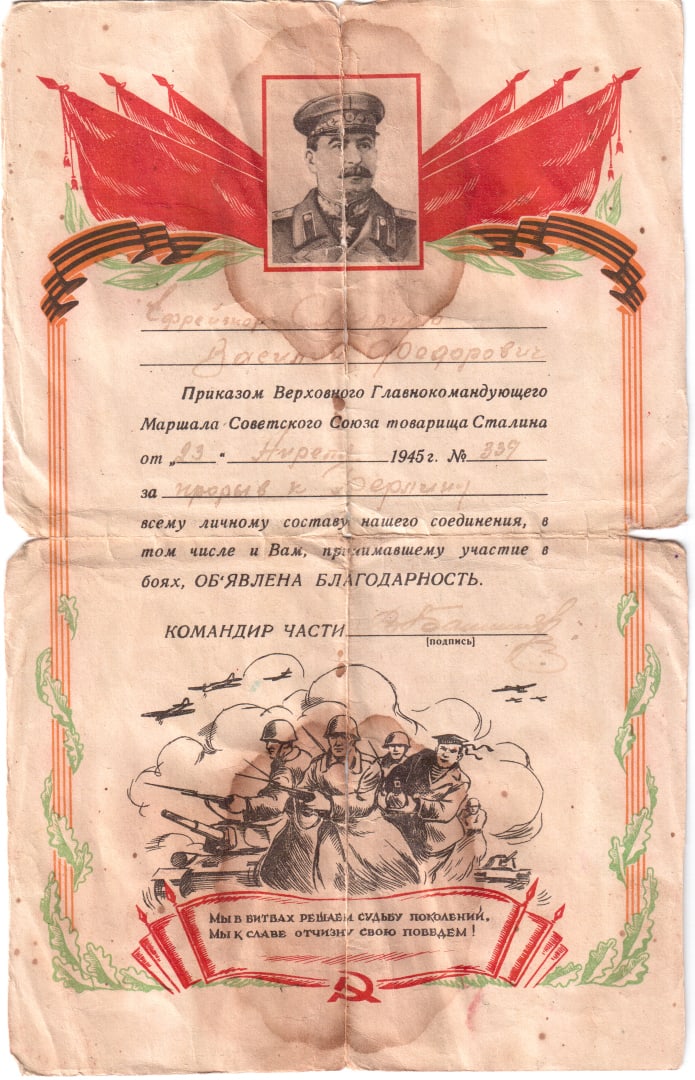 Ефрейтору
Василий Федорович
Приказом Верховного Главнокомандующего
Маршала Советского Союза товарища Сталина
от „23“ Апреля 1945 г. № 339
за прорыв к Берлину
всему личному составу нашего соединения, в
том числе и Вам, принимавшему участие в
боях, ОБ‘ЯВЛЕНА БЛАГОДАРНОСТЬ.
КОМАНДИР ЧАСТИ
[подпись]
МЫ В БИТВАХ РЕШАЕМ СУДЬБУ ПОКОЛЕНИЙ,
МЫ К СЛАВЕ ОТЧИЗНУ СВОЮ ПОВЕДЁМ!